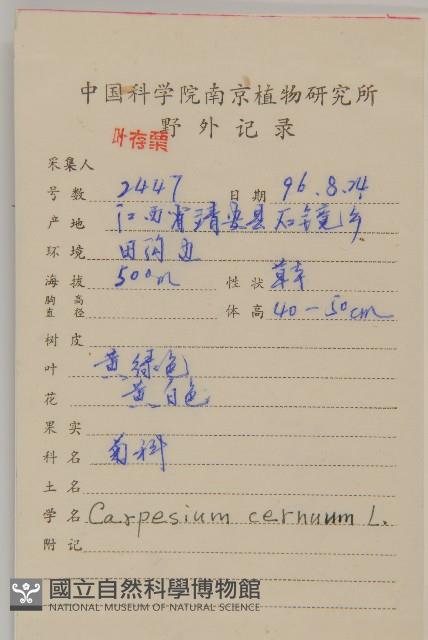 中国科学院南京植物研究所
野外记录
叶存票
采集人
号数 2447 日期 96.8.24
产地 江西省靖安县石镜乡
环境 田沟边
海拔 500m 性状 草本
胸高直径 体高 40-50cm
树皮
叶 黄绿色
花 黄白色
果实
科名 菊科
土名
学名 Carpesium cernuum L.
附记
國立自然科學博物館
NATIONAL MUSEUM OF NATURAL SCIENCE